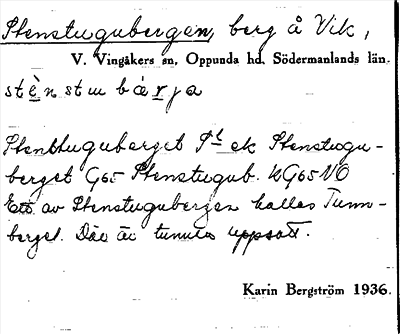 Stenstugubergen, berg å Vik,
V. Vingåkers sn, Oppunda hd, Södermanlands län.
stènstubärja
Stenstuguberget St ek Stenstugu-
berget G65 Stenstugub. HG65NO
Ett av Stenstugubergen kallas Tunn-
berget. Där är tunnla uppsatt.
Karin Bergström 1936.